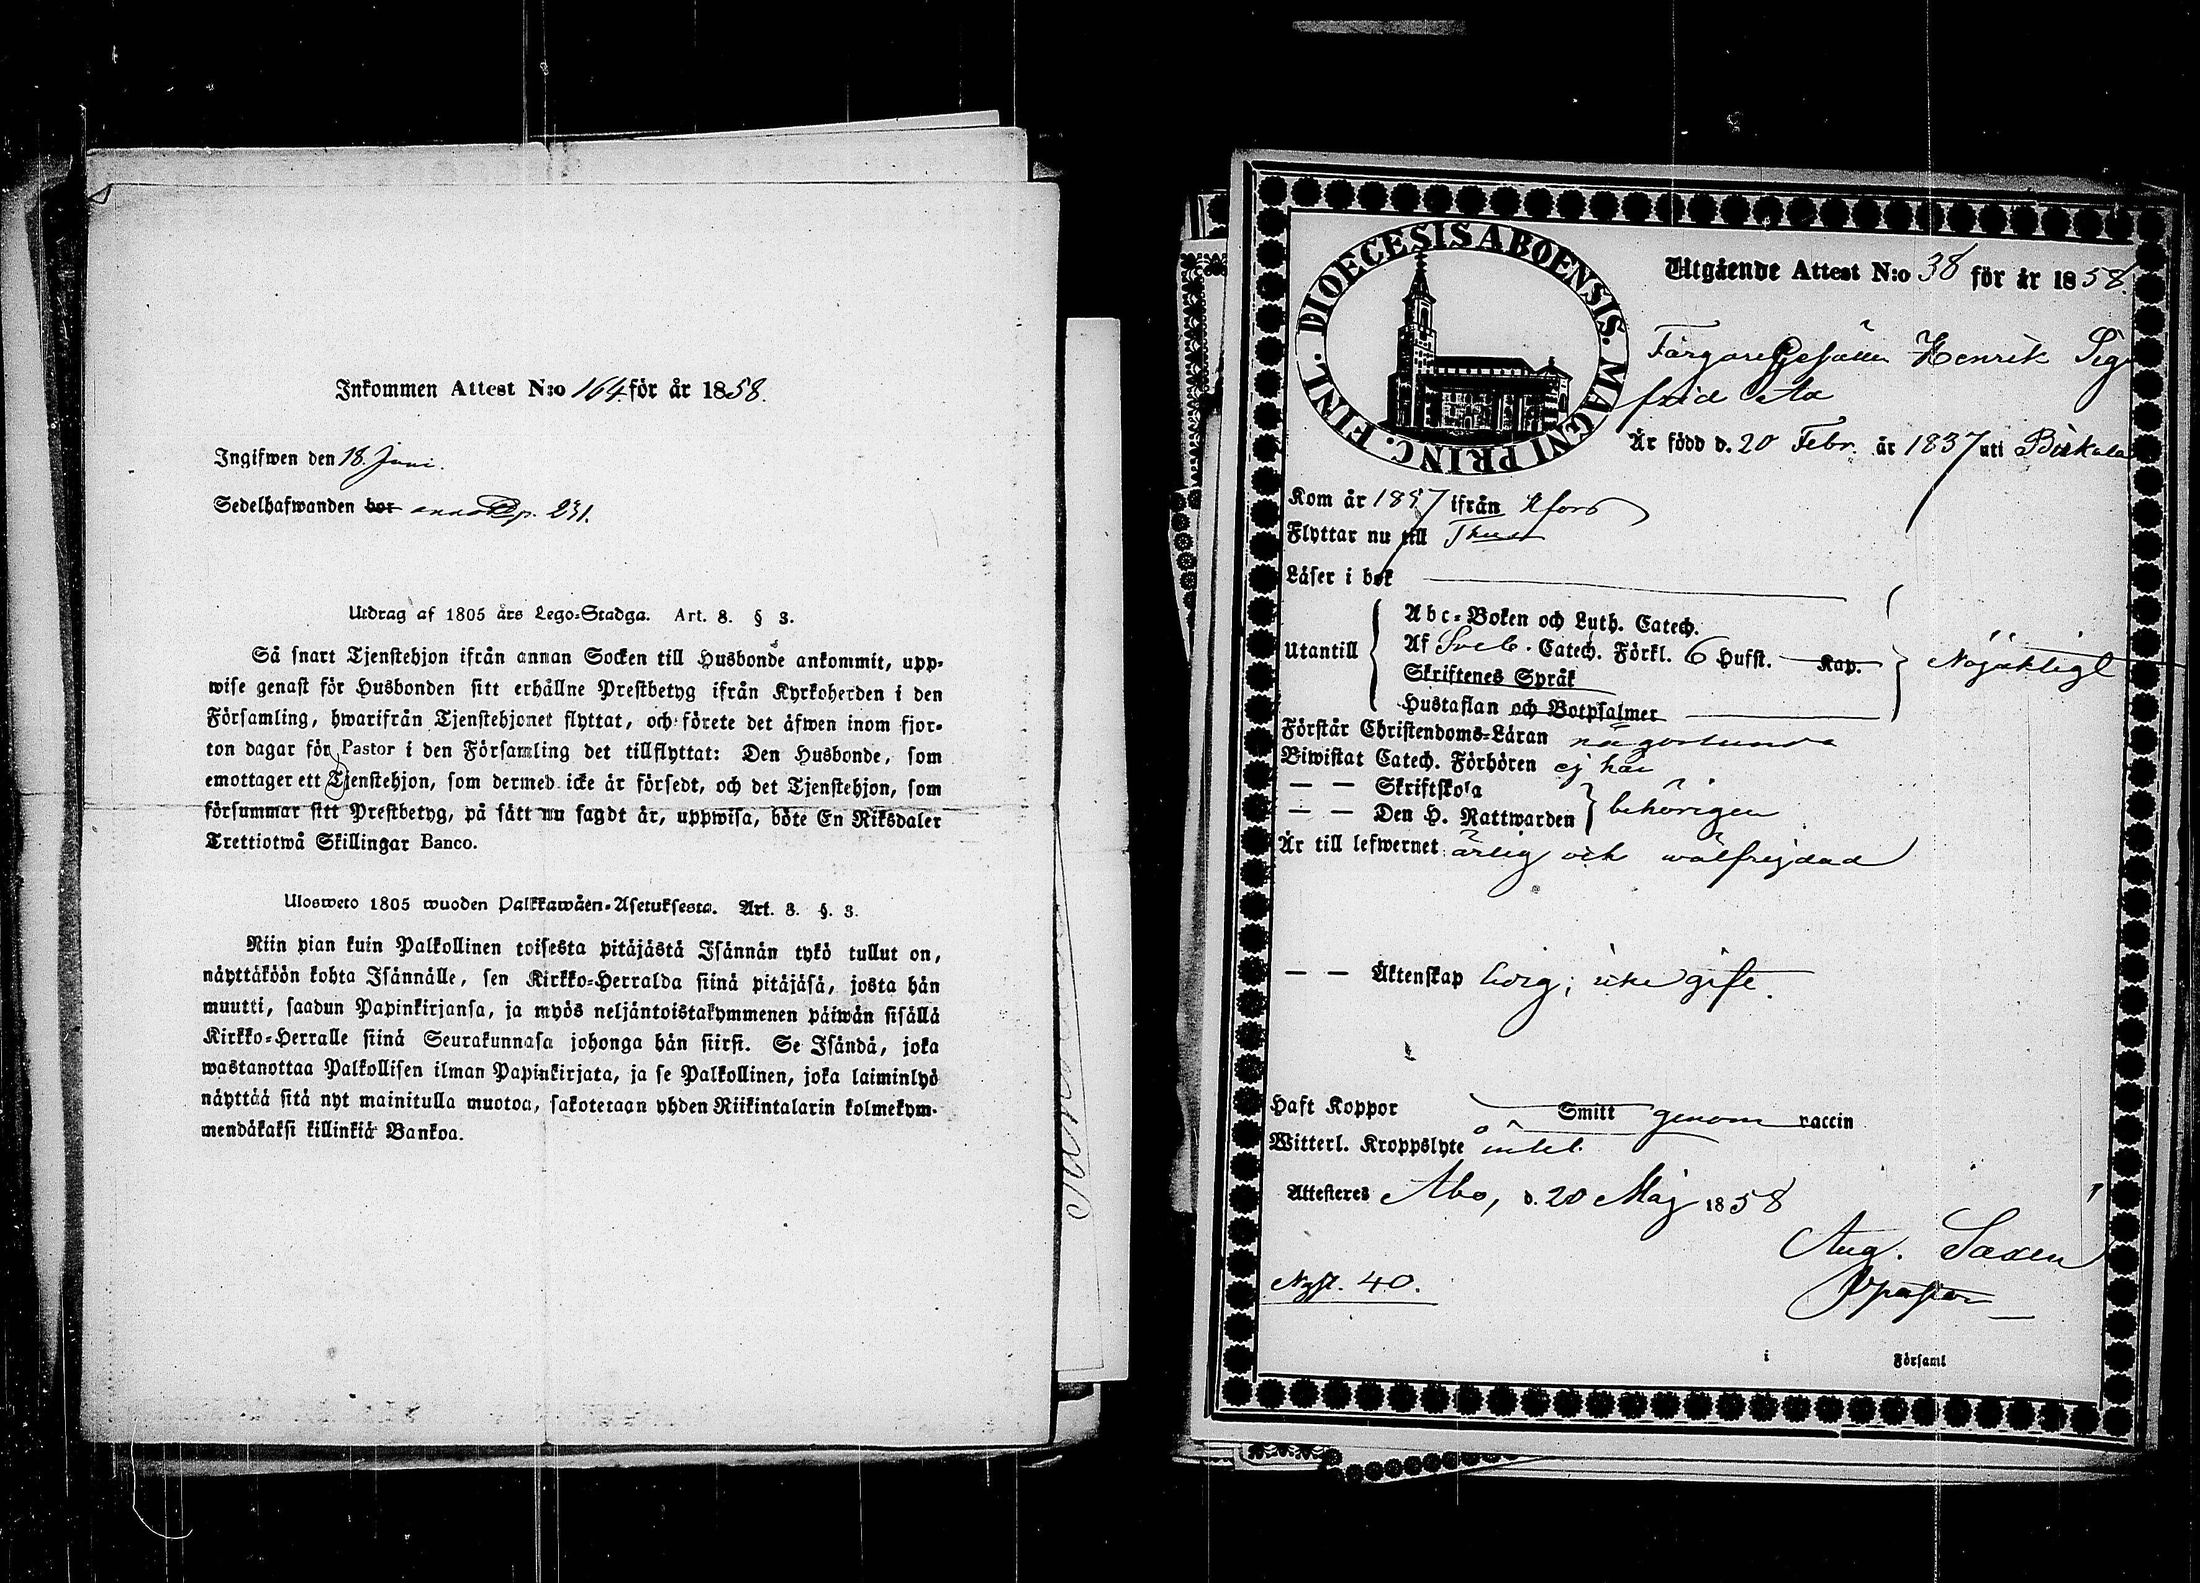 Inkommen Attest N:o 164 för år 1858.
Ingifwen den 18. Juni.
Sedelhafwanden bor annot. p. 231.
Utdrag af 1805 års Lego-Stadga. Art. 8. § 3.
Så snart Tjenstehjon ifrån annan Socken till Husbonde ankommit, upp-
wise genast för Husbonden sitt erhållne Prestbetyg ifrån Kyrkoherden i den
Församling, hwarifrån Tjenstehjonet flyttat, och förete det äfwen inom fjor-
ton dagar för Pastor i den Församling det tillflyttat: Den Husbonde, som
emottager ett Tjenstehjon, som dermed icke är försedt, och det Tjenstehjon, som
försummar sitt Prestbetyg, på sätt nu sagdt är, uppwisa, böte En Riksdaler
Trettiotwå Skillingar Banco.
Ulosweto 1805 wuoden Palkkawäen-Asetuksesta. Art. 8. §. 3.
Niin pian kuin Palkollinen toisesta pitäjästä Isännän tykö tullut on,
näyttäköön kohta Isännälle, sen Kirkko-Herralda siinä pitäjäsä, josta hän
muutti, saadun Papinkirjansa, ja myös neljäntoistakymmenen päiwän sisällä
Kirkko-Herralle siinä Seurakunnasa johonga hän siirsi. Se Isändä, joka
wastanottaa Palkollisen ilman Papinkirjata, ja se Palkollinen, joka laiminlyö
näyttää sitä nyt mainitulla muotoa, sakotetaan yhden Riikintalarin kolmekym-
mendäkaksi killinkiä Bankoa.
DIOECESIS ABOENSIS. MAGNI PRINC. FINL.
Utgående Attest N:o 38 för år 1858.
Färgaregesällen Henrik Sig
frid
Är född d. 20 Febr. år 1837 uti Birkala
Kom år 1857 ifrån Hfors
Flyttar nu till
Läser i bok
Utantill
Abc-Boken och Luth. Catech.
Af Sveb. Catech. Förkl. 6 Hufst. Kap.
Skriftenes Språk
Hustaflan och Botpsalmer
Nöjaktligt
Förstår Christendoms-Läran någorlunda
Biwistat Catech. Förhören ej här
— — Skriftskola
— — Den H. Nattwarden
behörigen
Är till lefwernet ärlig och wälfrejdad
— — Äktenskap ledig; icke gift.
Haft Koppor Smitt genom vaccin
Witterl. Kroppslyte intet.
Attesteras Åbo, d. 20 Maj 1858
Aug. Saxen
Ngst. 40.
i Församl